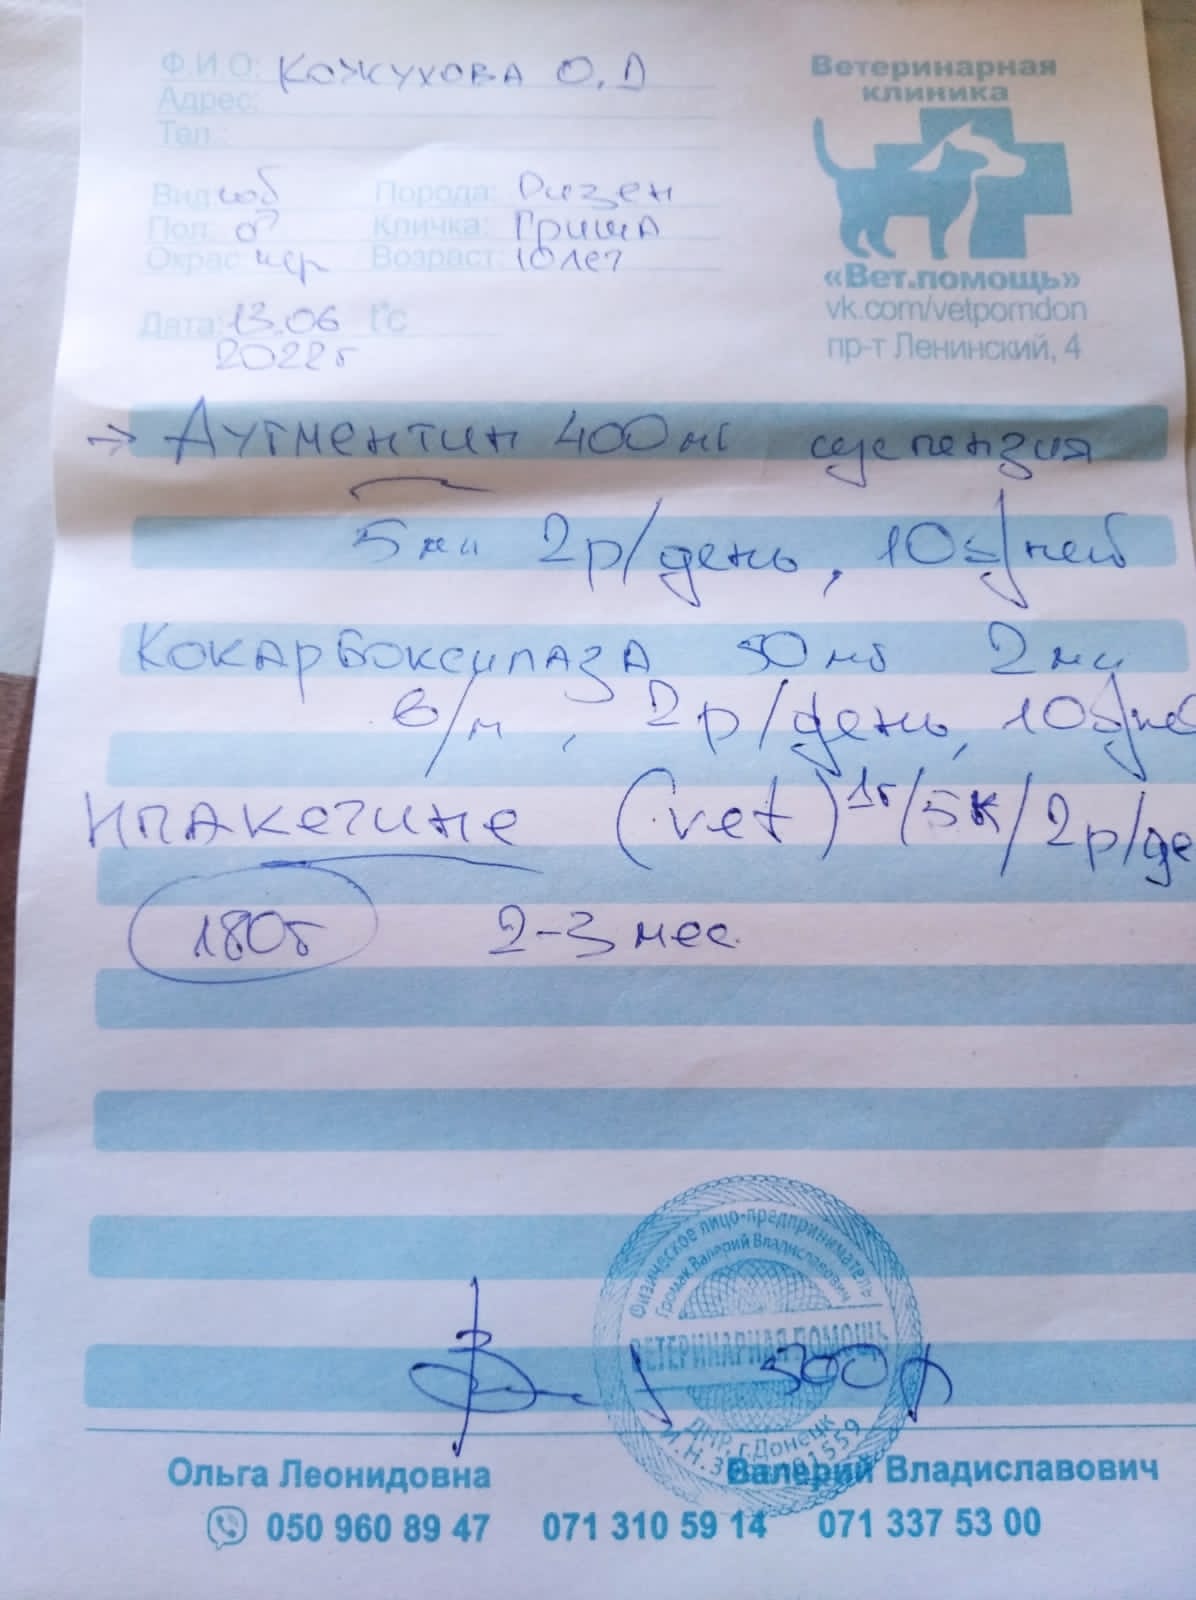 Ф.И.О: Кожухова О.Д
Адрес:
Тел.:
Вид: соб Порода: Ризен
Пол: ♂ Кличка: Гриша
Окрас: чер Возраст: 10 лет
Дата: 13.06 t°C
2022г
Ветеринарная
клиника
«Вет.помощь»
vk.com/vetpomdon
пр-т Ленинский, 4
→ Аугментин 400мг суспензия
5 мл 2р/день, 10 дней
Кокарбоксилаза 50 мг 2 мл
в/м, 2р/день, 10 дней
Ипакетине (vet) 1г/5к/2р/де
180г 2-3 мес.
Физическое лицо-предприниматель
Громак Валерий Владиславович
ВЕТЕРИНАРНАЯ ПОМОЩЬ
ДНР, г.Донецк
500р
Ольга Леонидовна Валерий Владиславович
050 960 89 47 071 310 59 14 071 337 53 00